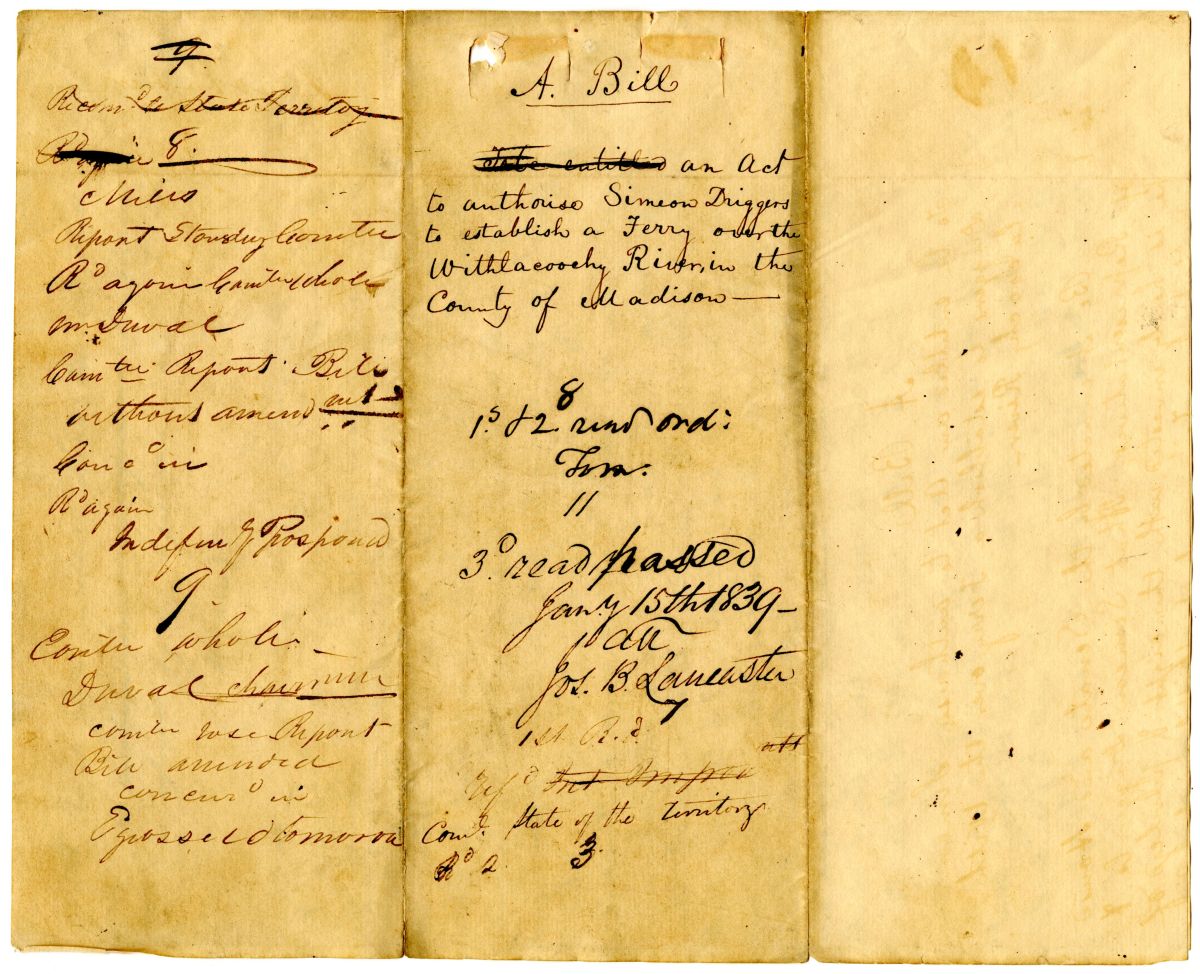 9.
Recom.d to State Territory
R.d again 8.
Miers
Report Standing Comtee
R.d again Comtee whole
Mr Duval
Comtee Report Bill
without amendment
Conc.d in
R.d again
Indefin.y Prosponed
9.
Comtee whole
Duval chairman
comtee rose Report
Bill amended
concur.d in
Egrossed tomorow
A. Bill
To be entitled an Act
to authorise Simeon Driggers
to establish a Ferry over the
Withlacoochy River, in the
County of Madison —
8
1.s & 2 read ord:
Tom.
11
3.d read passed
Jany 15th 1839 —
att
Jos. B. Lancaster
7
1st R.d
Ref.d Int Improv
Com.e State of the Territory
R.d 2 3